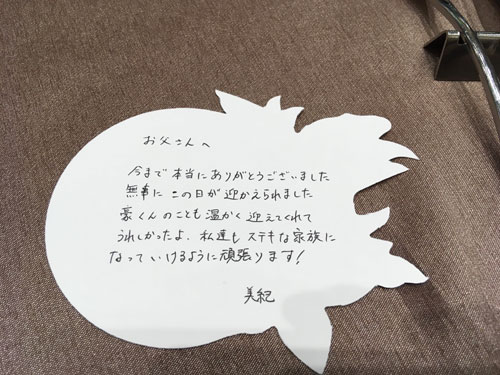 お父さんへ
今まで本当にありがとうございました
無事にこの日が迎かえられました
豪くんのことも温かく迎えてくれて
うれしかったよ、私達もステキな家族に
なっていけるように頑張ります!
美紀